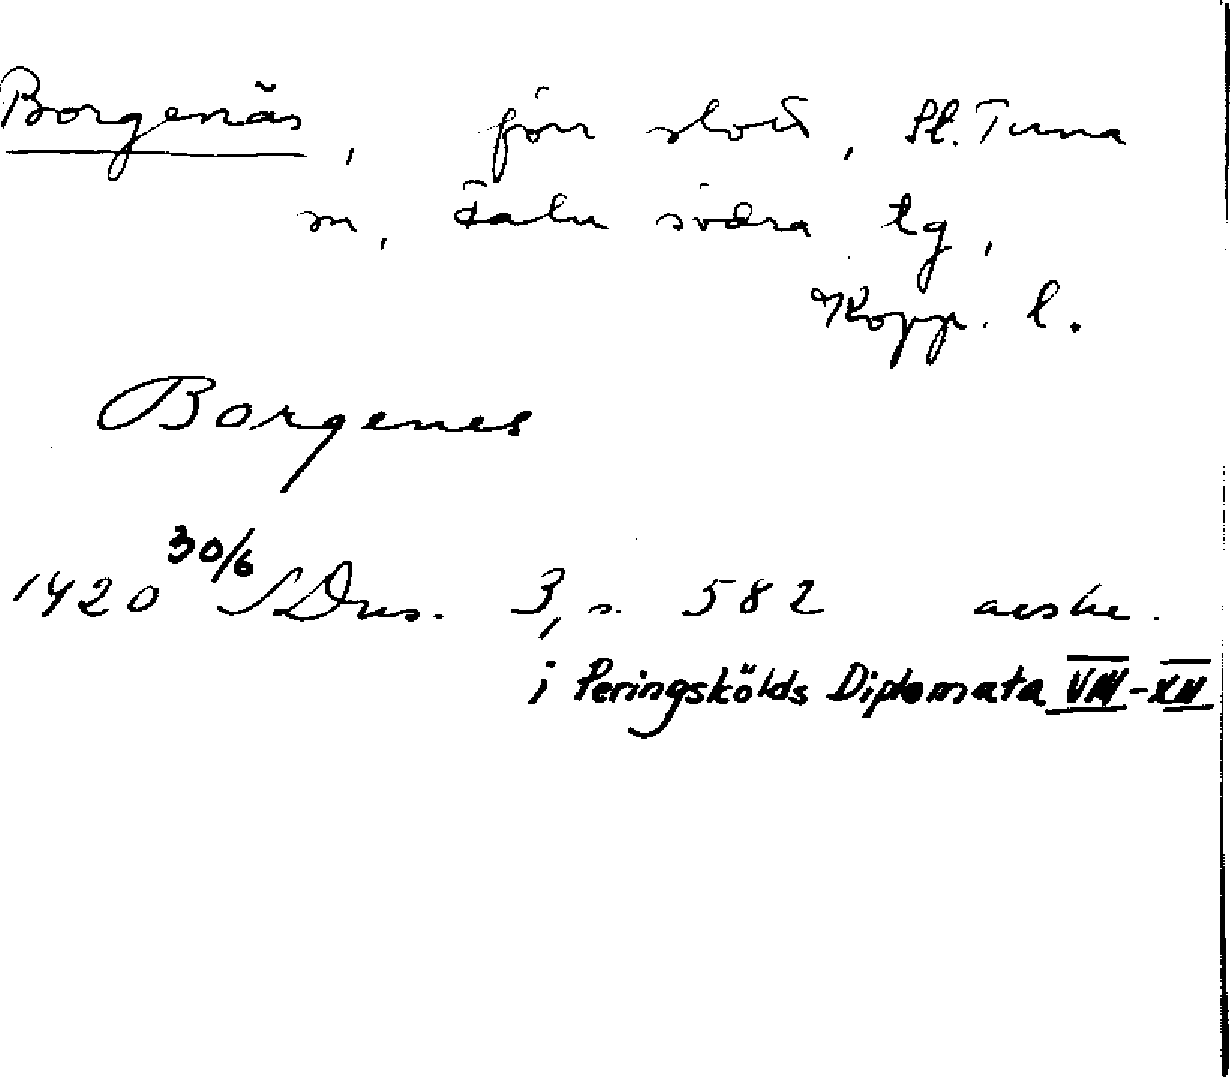 Borgenäs, förr slott, St. Tuna
sn, Falu södra tg,
Kopp. l.
Borgenes
1420 30/6 SDns. 3, s. 582 avskr.
i Peringskölds Diplomata VIII-XII